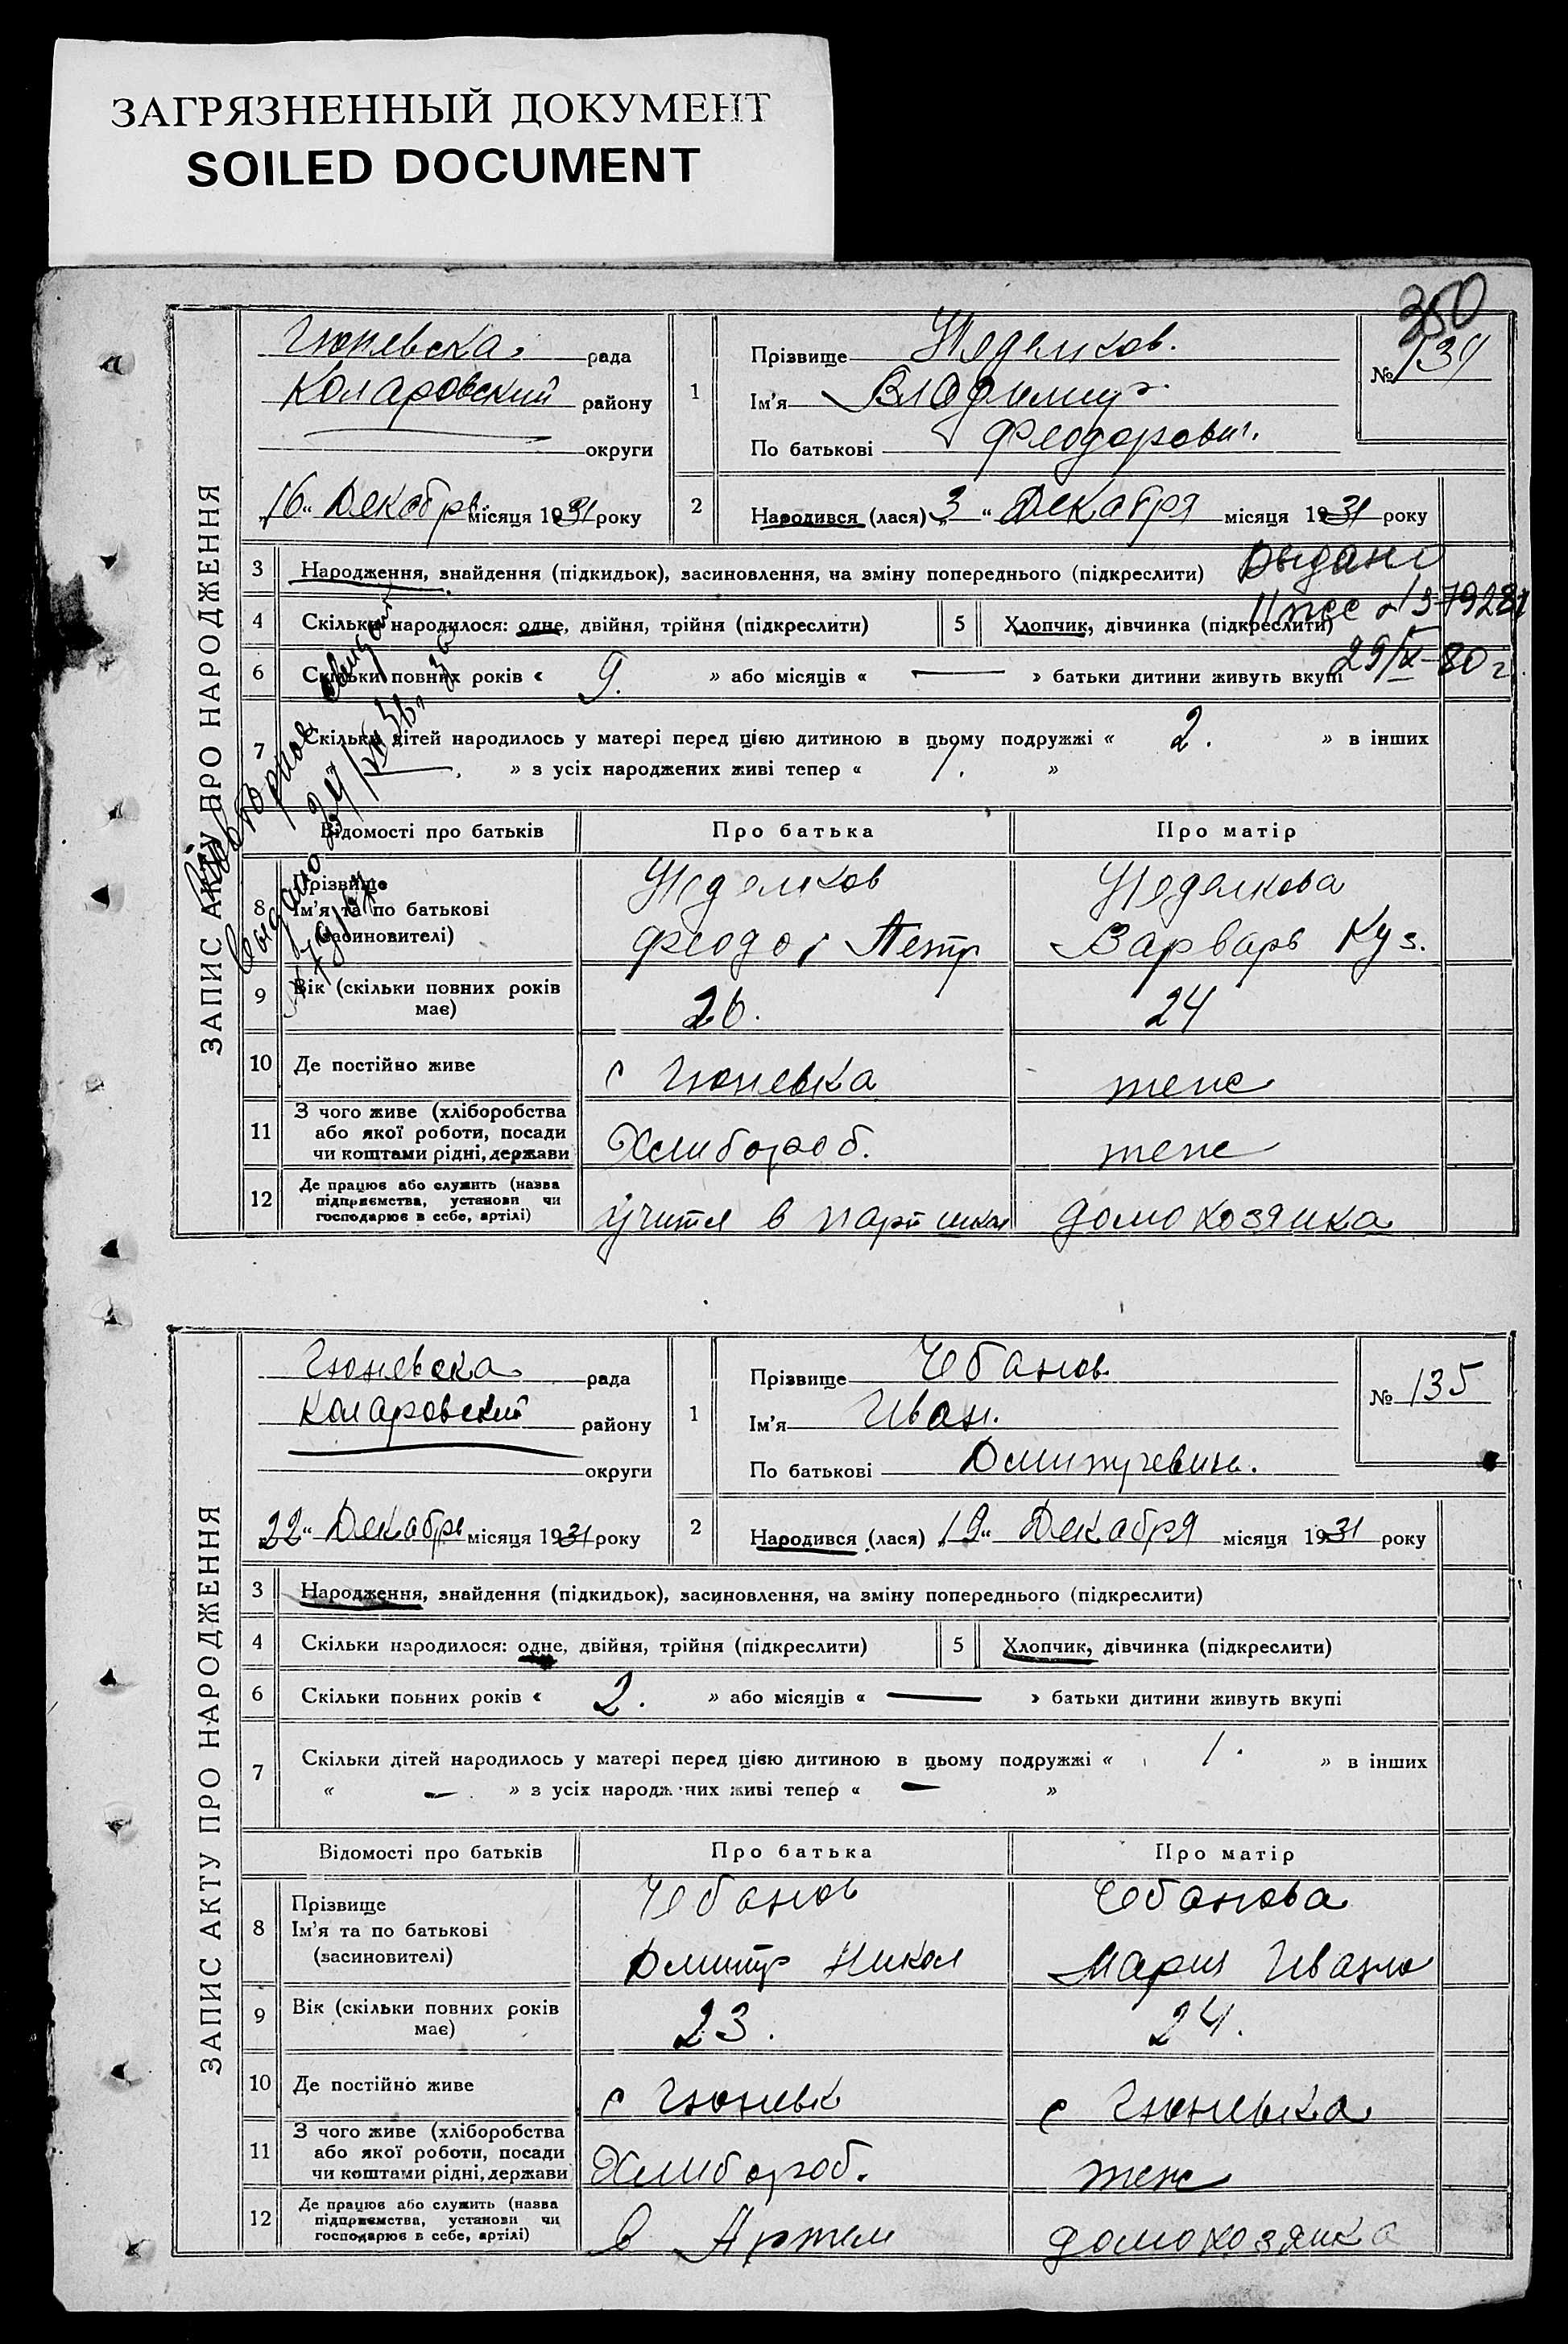 ЗАГРЯЗНЕННЫЙ ДОКУМЕНТ
SOILED DOCUMENT
350
ЗАПИС АКТУ ПРО НАРОДЖЕННЯ
Гюневска рада
Коларовский району
округи
„16“ Декабрь місяця 1931 року
1 Прізвище Неделков.
Ім’я Владимир
По батькові Феодорович.
№ 134
2 Народився (лася) „3“ Декабря місяця 1931 року
3 Народження, знайдення (підкидьок), засиновлення, на зміну попереднього (підкреслити)
Выдано
4 Скільки народилося: одне, двійня, трійня (підкреслити)
5 Хлопчик, дівчинка (підкреслити)
379281
6 Скільки повних років « 9. » або місяців « — » батьки дитини живуть вкупі
29/IX-80 г.
7 Скільки дітей народилось у матері перед цією дитиною в цьому подружжі « 2. » в інших
» з усіх народжених живі тепер « 1. »
Повторное
выдано
Відомості про батьків Про батька Про матір
8 Прізвище
Ім’я та по батькові
(засиновителі)
Неделков
Феодор Петр
Неделкова
Варварь Куз.
9 Вік (скільки повних років
має)
26.
24
10 Де постійно живе
с Гюневка
тепе
11 З чого живе (хліборобства
або якої роботи, посади
чи коштами рідні, держави
Хлибороб.
тепе
12 Де працює або служить (назва
підприємства, установи чи
господарює в себе, артілі)
учится в парт школ
домохозяика
ЗАПИС АКТУ ПРО НАРОДЖЕННЯ
Гюневска рада
Коларовский району
округи
„22“ Декабрь місяця 1931 року
1 Прізвище Чебанов.
Ім’я Иван.
По батькові Дмитриевич.
№ 135
2 Народився (лася) „19“ Декабря місяця 1931 року
3 Народження, знайдення (підкидьок), засиновлення, на зміну попереднього (підкреслити)
4 Скільки народилося: одне, двійня, трійня (підкреслити)
5 Хлопчик, дівчинка (підкреслити)
6 Скільки повних років « 2. » або місяців « — » батьки дитини живуть вкупі
7 Скільки дітей народилось у матері перед цією дитиною в цьому подружжі « 1. » в інших
« — » з усіх народжених живі тепер « — »
Відомості про батьків Про батька Про матір
8 Прізвище
Ім’я та по батькові
(засиновителі)
Чебанов
Дмитр Никол
Чебанова
Мария Ивано
9 Вік (скільки повних років
має)
23.
24.
10 Де постійно живе
с Гюневк
с Гюневка
11 З чого живе (хліборобства
або якої роботи, посади
чи коштами рідні, держави
Хлибороб.
тепе
12 Де працює або служить (назва
підприємства, установи чи
господарює в себе, артілі)
в Артели
домохозяика